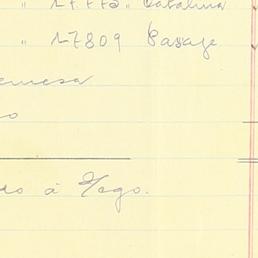 " 17775 " Catalina
" 17809 Pasaje
emesa
o
do á Hago.